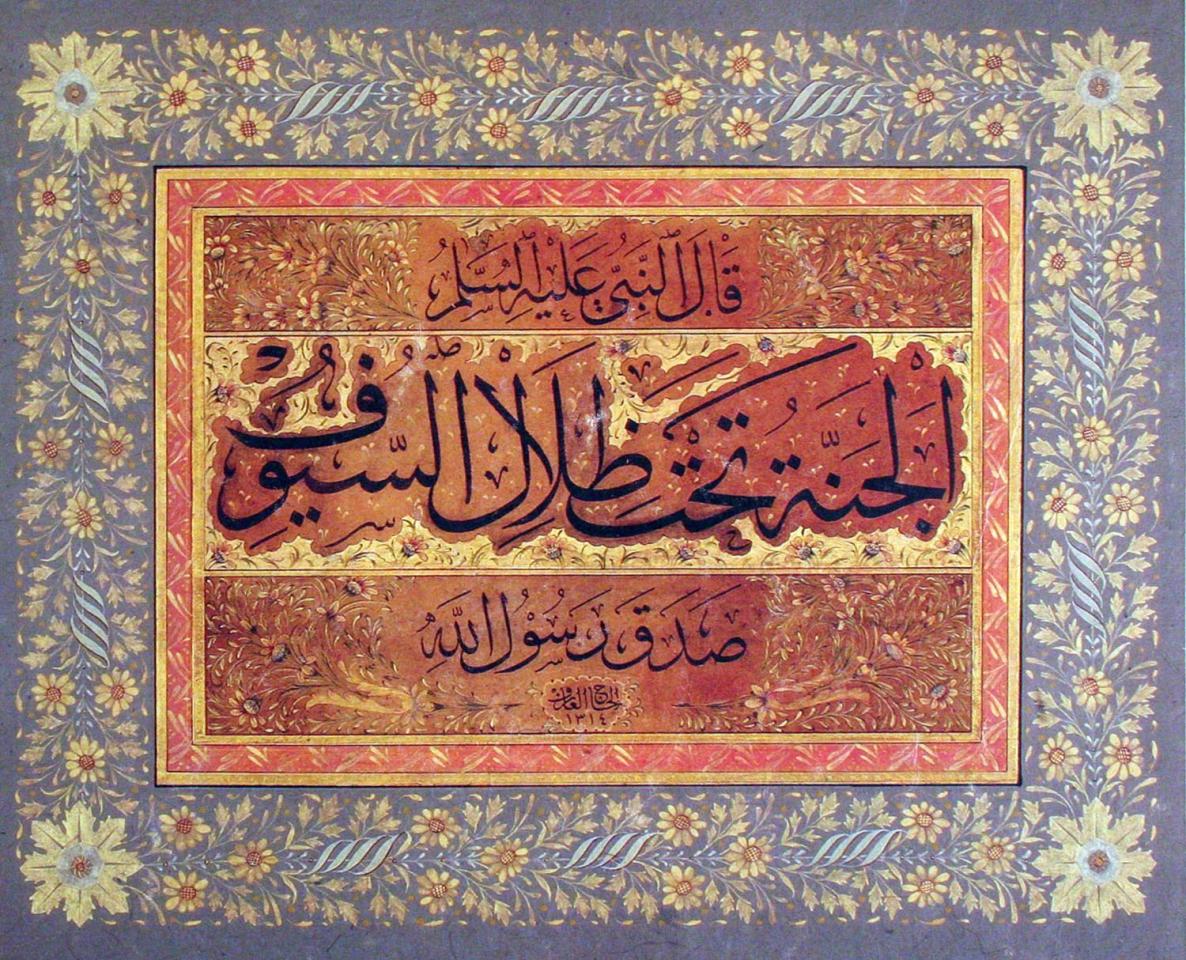 قَالَ النَّبِيُّ عَلَيْهِ السَّلَمُ
اَلْجَنَّةُ تَحْتَ ظِلَالِ السُّيُوْفِ
صَدَقَ رَسُوْلُ اللّٰه
الحاج العارف
١٣١٤